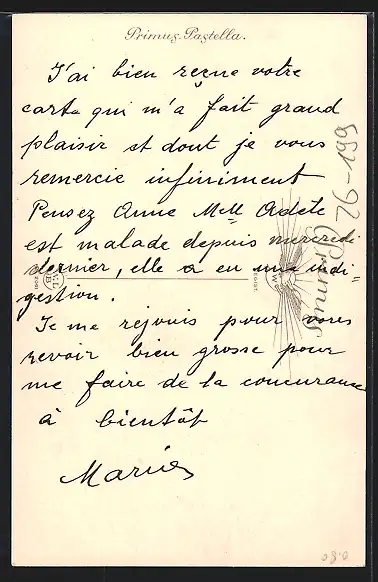 Primus-Pastella.
J'ai bien reçue votre
carte qui m'a fait grand
plaisir et dont je vous
remercie infiniment
Pensez Anne Mell Adèle
est malade depuis mercredi
dernier, elle a eu une indi=
gestion.
Je me rejouis pour vous
revoir bien grosse pour
me faire de la concurance
à bientôt
Maria
Primus